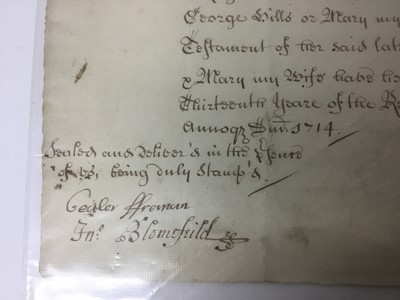 George Bills or Mary my
Testament of her said late
x Mary my Wife have he
Thirteenth Yeare of the Re
Annoqz Dm̃. 1714.
Sealed and deliver'd in the Psence
of us, being duly Stamp'd
ffreeman
Jnº. Blomefeild